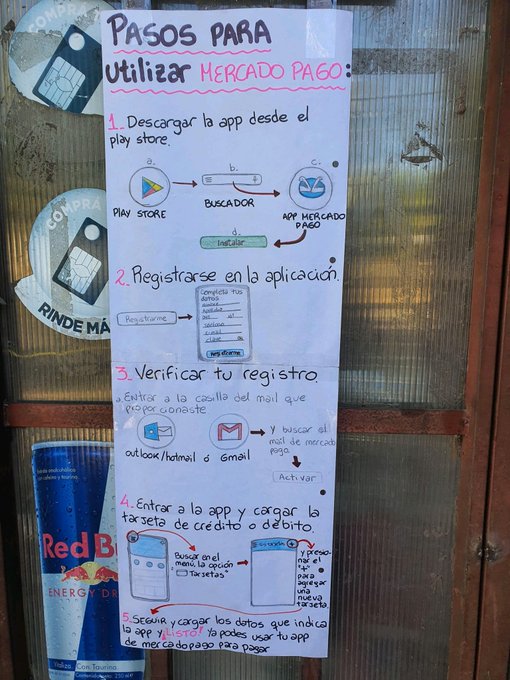 COMPRÁ
PASOS PARA
Utilizar MERCADO PAGO:
1_ Descargar la app desde el
play store.
a.
b.
c.
PLAY STORE
BUSCADOR
APP MERCADO
PAGO
d.
Instalar
COMPRÁ
RINDE MÁ
2_ Registrarse en la aplicación.
Registrarme
Completa tus
datos
nombre
Apellido
DNI
teléfono
e-mail
clave
Registrarme
3_ Verificar tu registro.
a. Entrar a la casilla del mail que
proporcionaste
outlook/hotmail ó Gmail
y buscar el
mail de mercado
pago.
Activar
4_ Entrar a la app y cargar la
tarjeta de crédito o débito.
Buscar en el
menú, la opción
"Tarjetas"
y presio-
nar el
"+"
para
agregar
una
nueva
tarjeta.
5_ SEGUIR y cargar los datos que indica
la app y ¡LISTO! Ya podes usar tu app
de mercado pago para pagar
Red B
ENERGY DR
Vitaliza
Con Taurina.